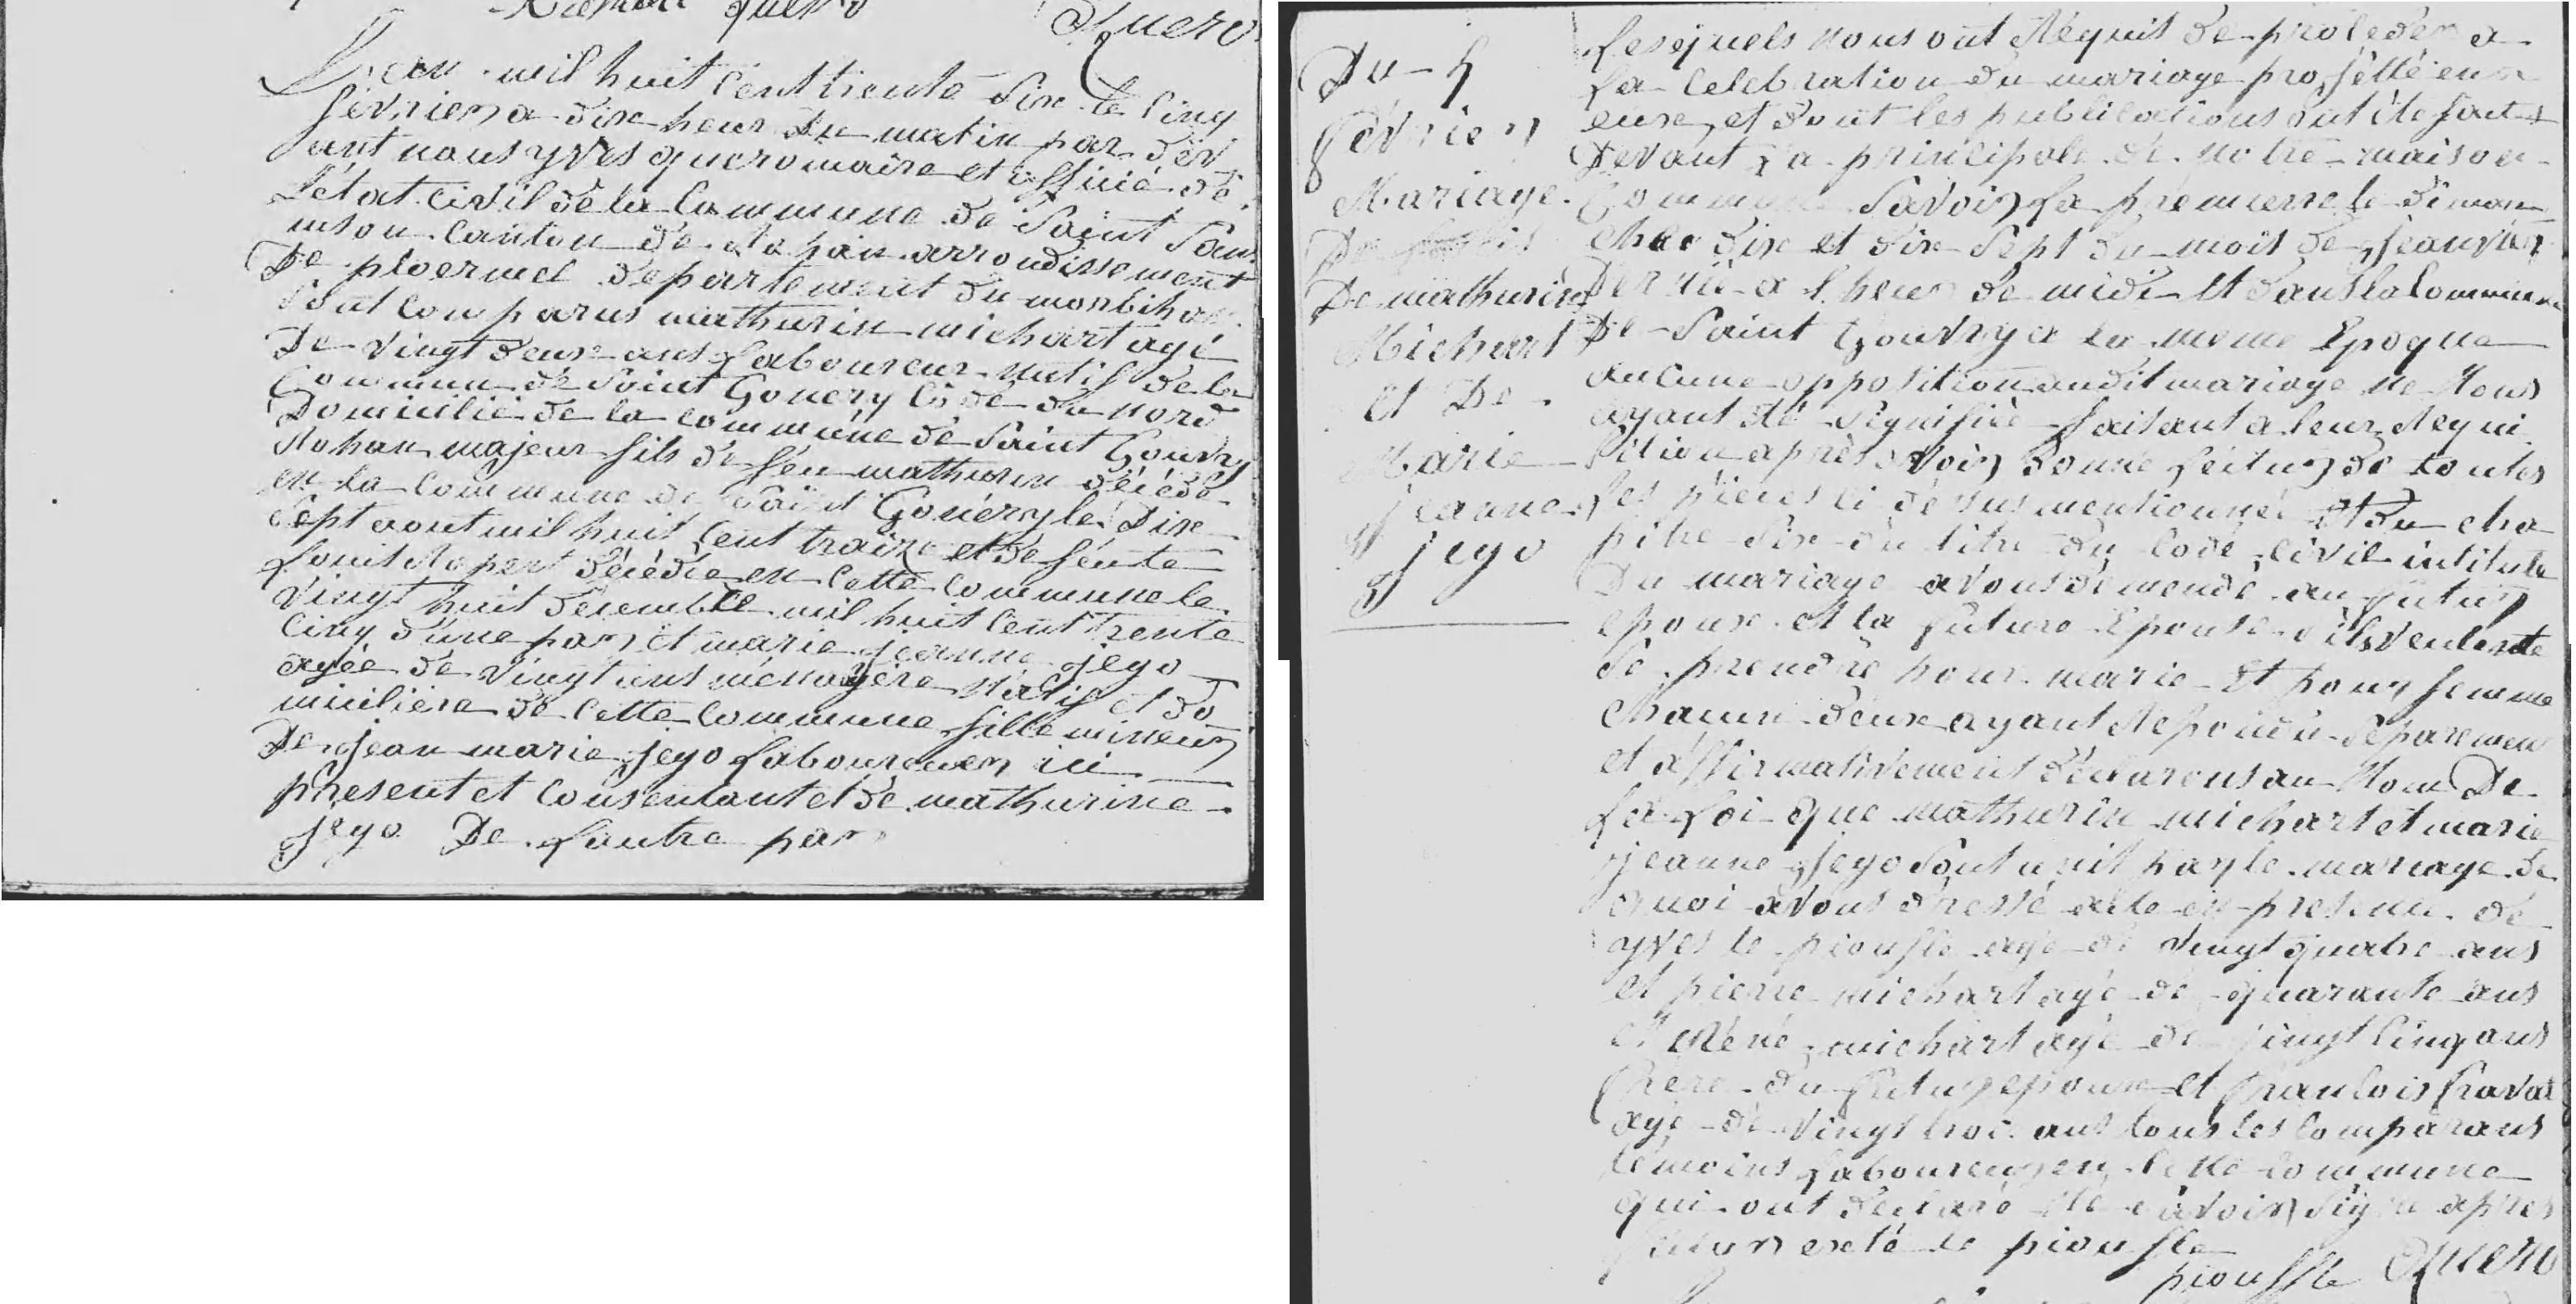 Quero
L'an mil huit cent trente six le cinq
fevrier a dix heur du matin par dev
ant nous yves quero maire et officié de
l'état civil de la commune de Saint Sam
nson canton de Rohan arrondissement
De ploermel departement du morbihan
Sont comparus mathurin michart agé
De vingt deux ans laboureur natif de la
Commun de Saint Gouery Côde du nord
Domicilié de la commune de Saint Gouvry
Rohan majeur fils de feu mathurin décédé
en la commune de Saint Gouéry le Dix
Sept aout mil huit cent traize et de feunte
Louise décédée en cette commune le
vingt huit decembre mil huit cent trente
cinq d'une par et marie jeanne jego
agée de vingt ans ménagère natif et do
miciliere de cette commune fille mineur
De jean marie jego laboureuer ici
présent et consentant et de mathurine
jego De l'autre par
Du 5
février
Mariage
De
De mathurin
Michart
et De
Marie
jeanne
jego
Lesquels nous ont Requit de proceder a
La celebration du mariage projetté entre
eux et dont les publications ont été faites
Devant La principale de notre maison
Commune Savoir La premiere le diman
che dix et dix Sept du mois de jeanvier
Dernié a l'heur de midi et dans la commune
De Saint Gouvry a la meme Epoque
aucune opposition audit mariage ne Nous
ayant été signifiée faisant a leur Requi
sition après avoir Donné lectur de toutes
Les pièces ci désus mentionné et du cha
pitre Six du titre du code civil intitulé
Du mariage avons demendé au futur
epoux et la future Epouse s'ils veulente
Se prendre pour marie et pour femme
chacun d'eux ayant Repondu Séparemen
et affirmativement déclarons au Nom De
La Loi que mathurin michart et marie
jeanne jego Sont unit par le mariage de
quoi avons dressé acte en presence de
yves le piouffle agé de vingt quatre ans
et pierre michart agé de quarante ans
et Réné michart agé de vingt cinq ans
frere du futur epoux et francois
agé de vingt troi ans tous les comparans
témoins laboureur en cette commune
qui ont declaré Ne savoir signe apres
lectur exeté le piouffle
piouffle Quero